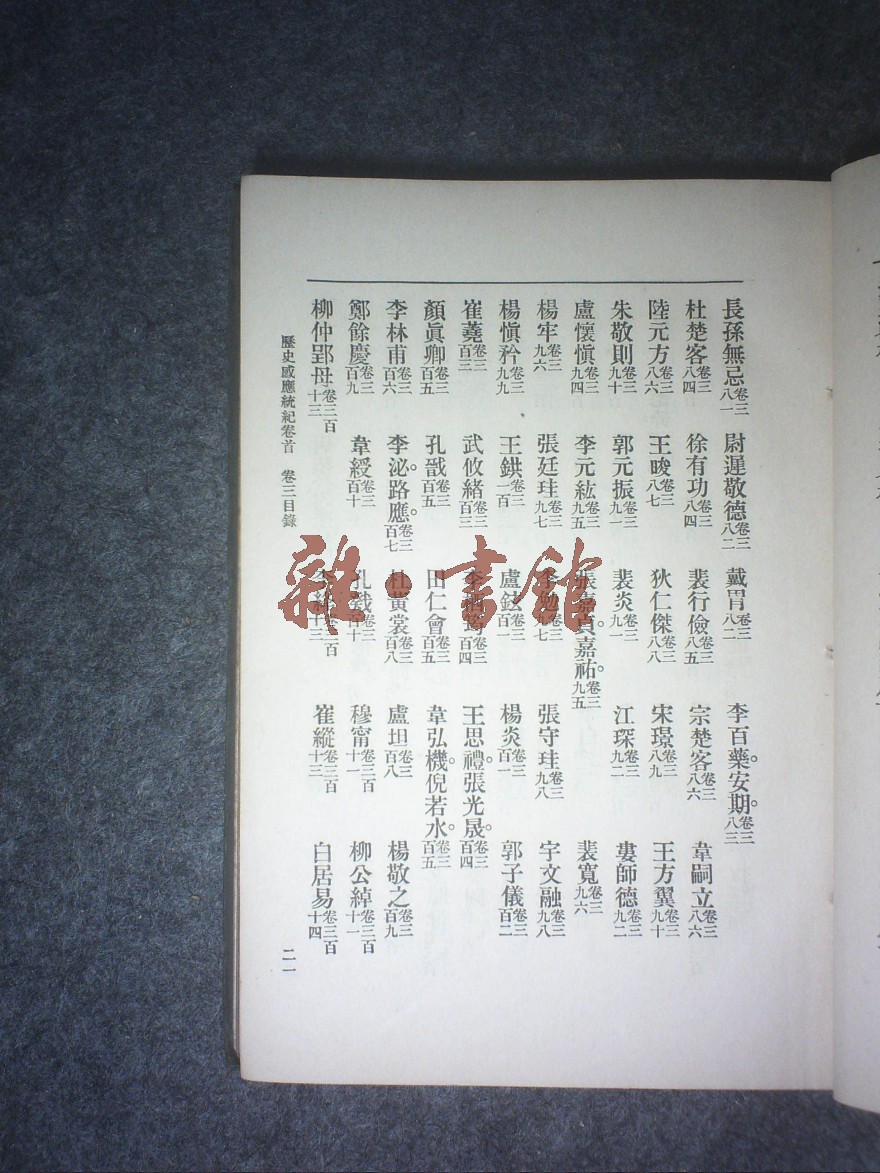 長孫無忌卷三八一 尉遲敬德卷三八二 戴胄卷三八二 李百藥。安期。卷三八三
杜楚客卷三八四 徐有功卷三八四 裴行儉卷三八五 宗楚客卷三八六 韋嗣立卷三八六
陸元方卷三八六 王晙卷三八七 狄仁傑卷三八八 宋璟卷三八九 王方翼卷三九十
朱敬則卷三九十 郭元振卷三九一 裴炎卷三九一 江琛卷三九二 婁師德卷三九二
盧懷愼卷三九四 李元紘卷三九五 張嘉貞。嘉祐。卷三九五 裴寬卷三九六
楊牢卷三九六 張廷珪卷三九七 李勉卷三九七 張守珪卷三九八 宇文融卷三九八
楊愼矜卷三九九 王鉷卷三一百 盧鉉卷三百一 楊炎卷三百一 郭子儀卷三百二
崔蕘卷三百三 武攸緒卷三百三 李栖筠卷三百四 王思禮。張光晟。卷三百四
顏眞卿卷三百五 孔戩卷三百五 田仁會卷三百五 韋弘機。倪若水。卷三百五
李林甫卷三百六 李泌。路應。卷三百七 杜黃裳卷三百八 盧坦卷三百八 楊敬之卷三百九
鄭餘慶卷三百九 韋綬卷三百十 孔戣卷三百十 穆甯卷三百十一 柳公綽卷三百十一
柳仲郢母卷三百十三 卷三百十三 崔縱卷三百十三 白居易卷三百十四
歷史感應統紀卷首 卷三目錄 二一
雜·書館